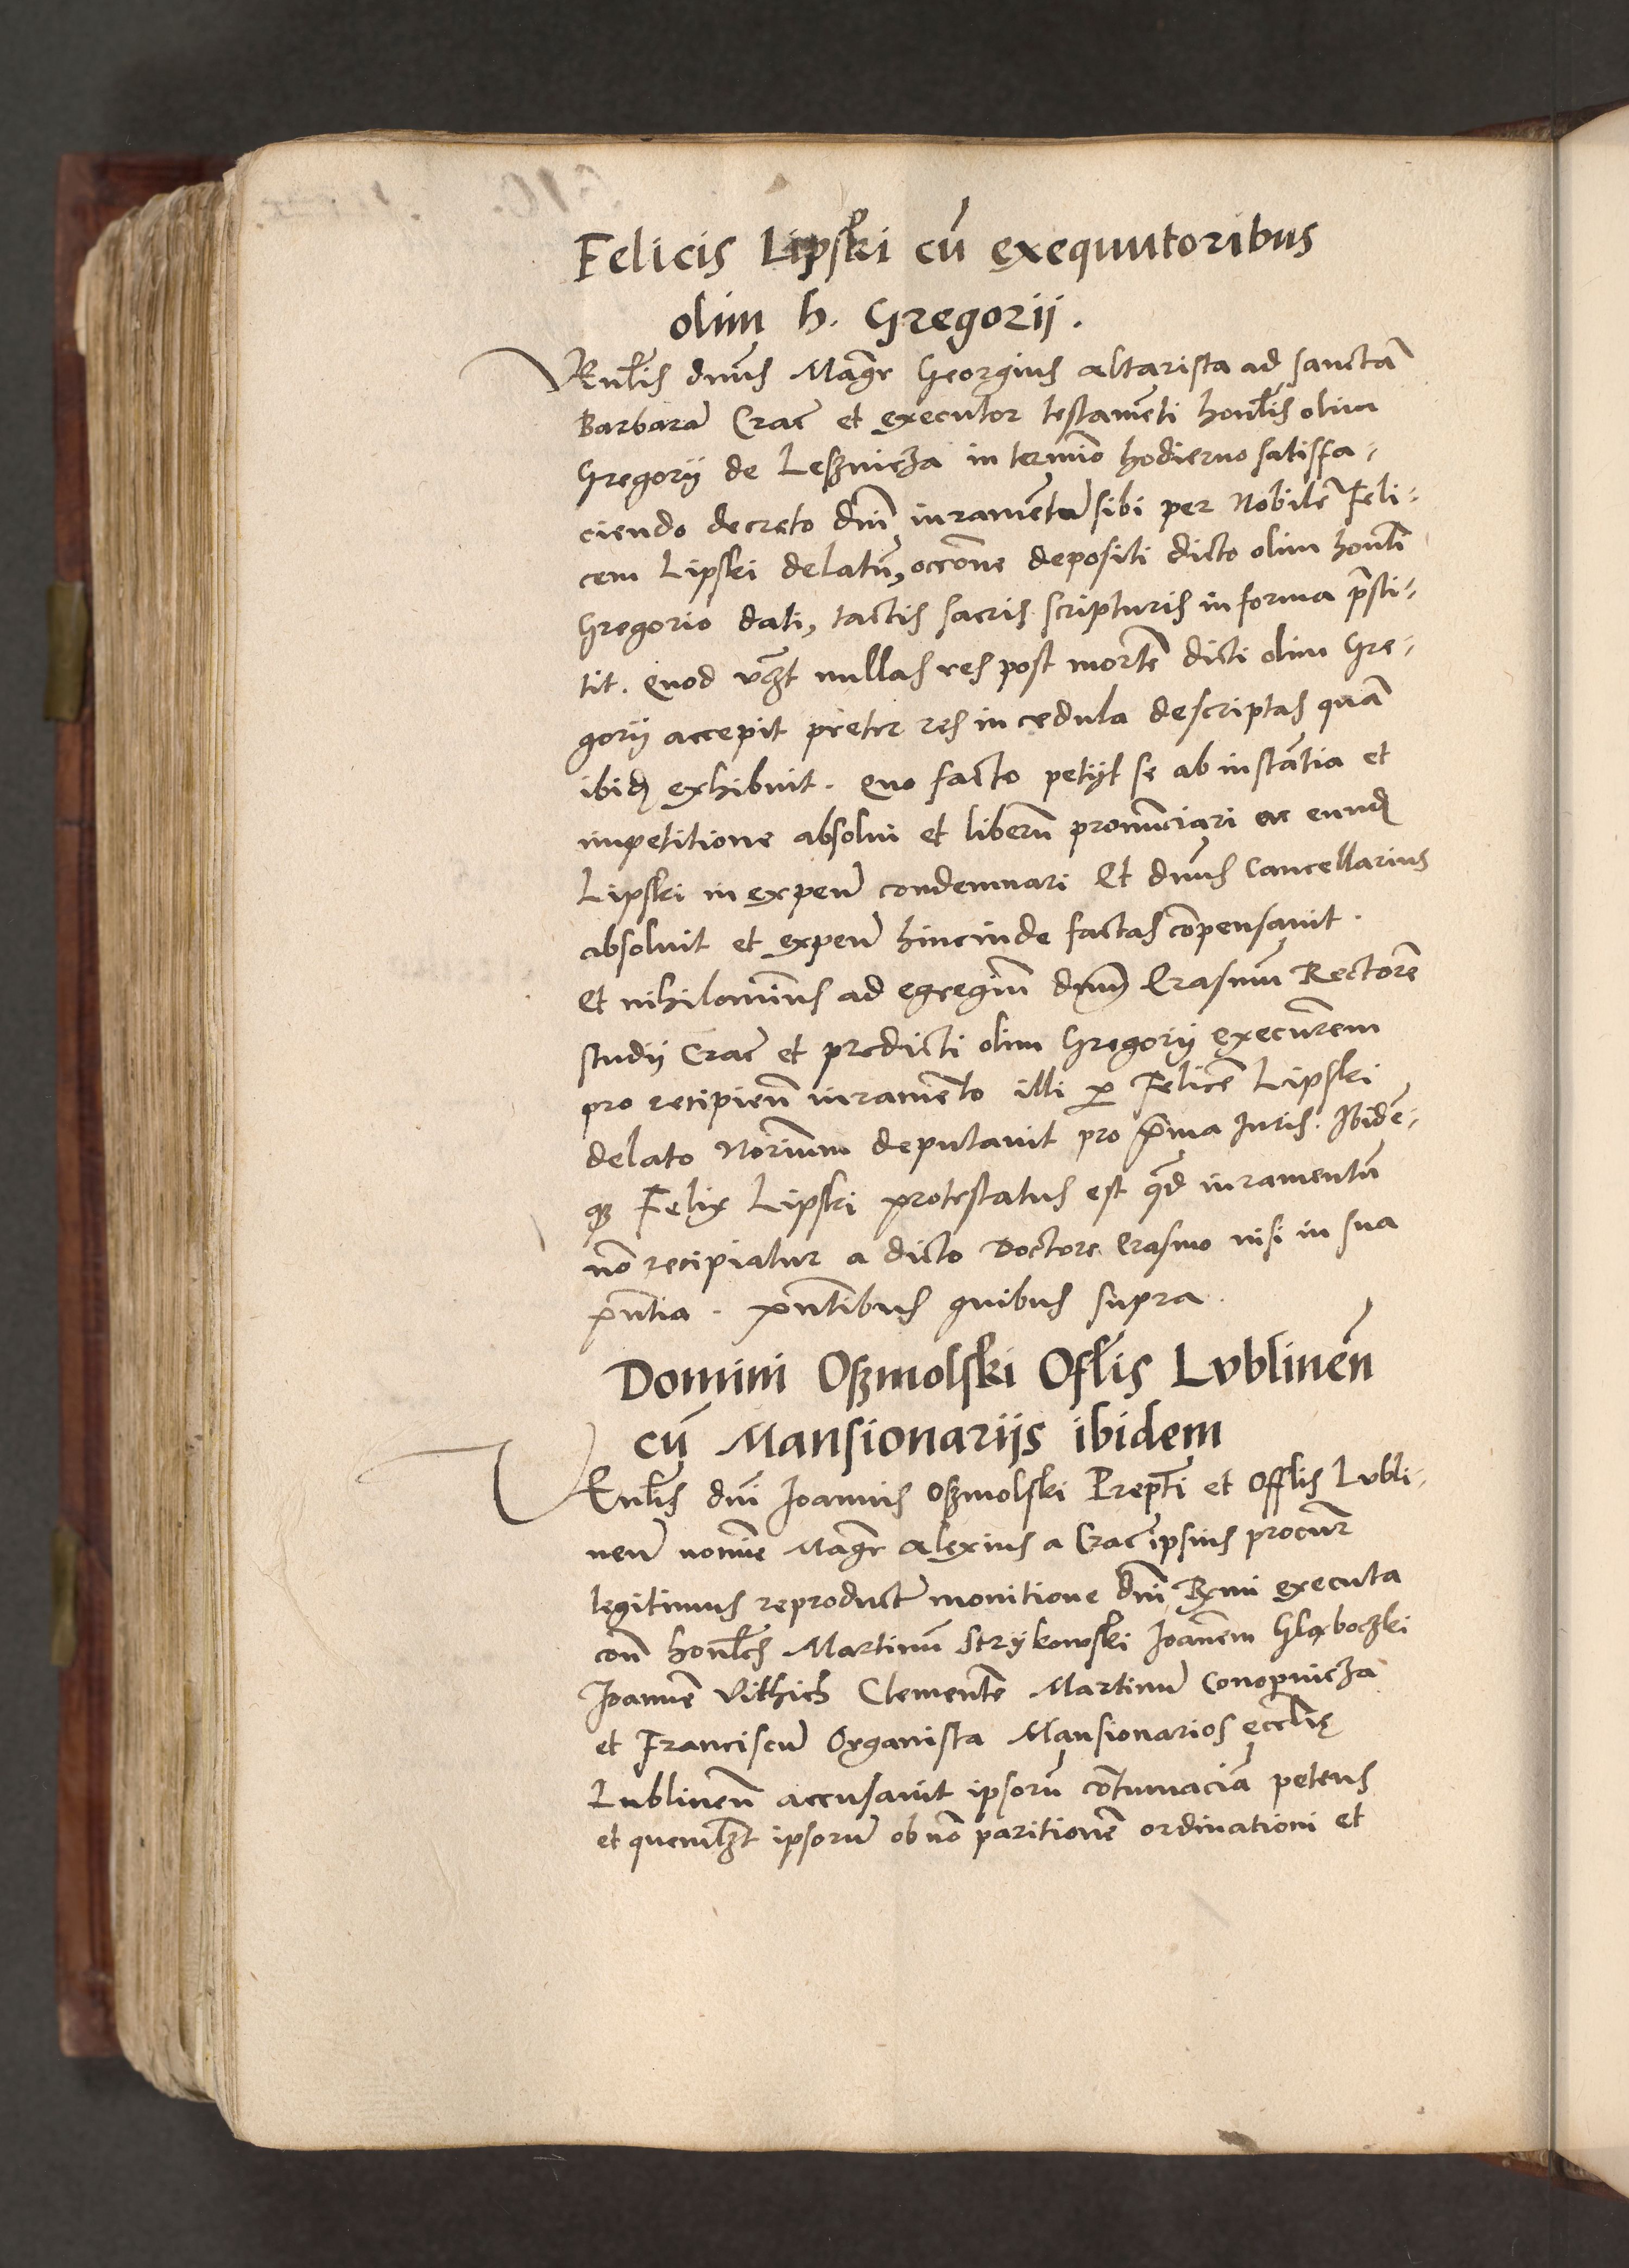 Felicis Lipski cū exequutoribus
olim h. Gregorii.
Vēnlis dnus Mag̅r Georgius altarista ad sanctā
Barbarā Crac̄ et executor testamēti honlis olim
Gregorij de Lesznicza in termīo hodierno satisfa-
ciendo decreto dnī iuramētū sibi per Nobilē Feli-
cem Lipski delatū, occōne depositi dicto olim honlī
Gregorio dati, tactis sacris scripturis in forma p̄sti-
tit. Quod vz̄t nullas res post mortē dicti olim Gre-
gorij accepit preter res in cedula descriptas quā
ibidē exhibuit. Quo facto petijt se ab instātia et
impetitione absolui et liberū pronūciari ac eundē
Lipski in expen̄ condemnari Et dnus Cancellarius
absoluit et expen̄ hincinde factas cōpensauit.
Et nihilominus ad egregiū dnum Erasmū Rectorē
studij Crac̄ et predicti olim Gregorij execut̄rem
pro recipien̄ iuramēto illi p Felicē Lipski
delato Notarium deputauit pro p̄ma Iuris. Ibidē-
q Felix Lipski protestatus est qd iuramentū
nō recipiatur a dicto Doctore Erasmo nisi in sua
pn̄tia. pn̄tibus quibus supra.
Domini Oszmolski Oflis Lublinen̄
cū Mansionariis ibidem
Vēnlis dnī Ioannis Oszmolski Prep̄ti et Offlis Lubli-
nen̄ nomīe Mag̅r Alexius a Crac̄ ipsius procur̄
legitimus reproduct̄ monitione dnī R̄mi executa
con̄ honl̄es Martinū Strijkowski Ioānem Głąboczki
Ioannē Vithich Clementē Martinū Conopnicza
et Franciscū Organista Mansionarios eccl̄ię
Lublinen̄ accusauit ipsorū cōtumaciā petens
et quemlz̄t ipsorū ob nō paritionē ordinationi et